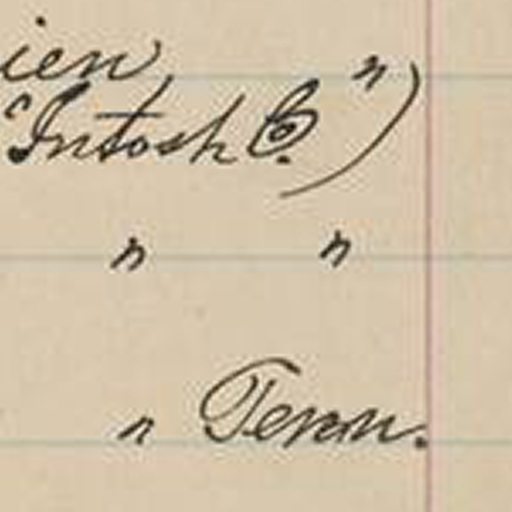 ien, "
cIntosh Co.)
" "
" Tenn.